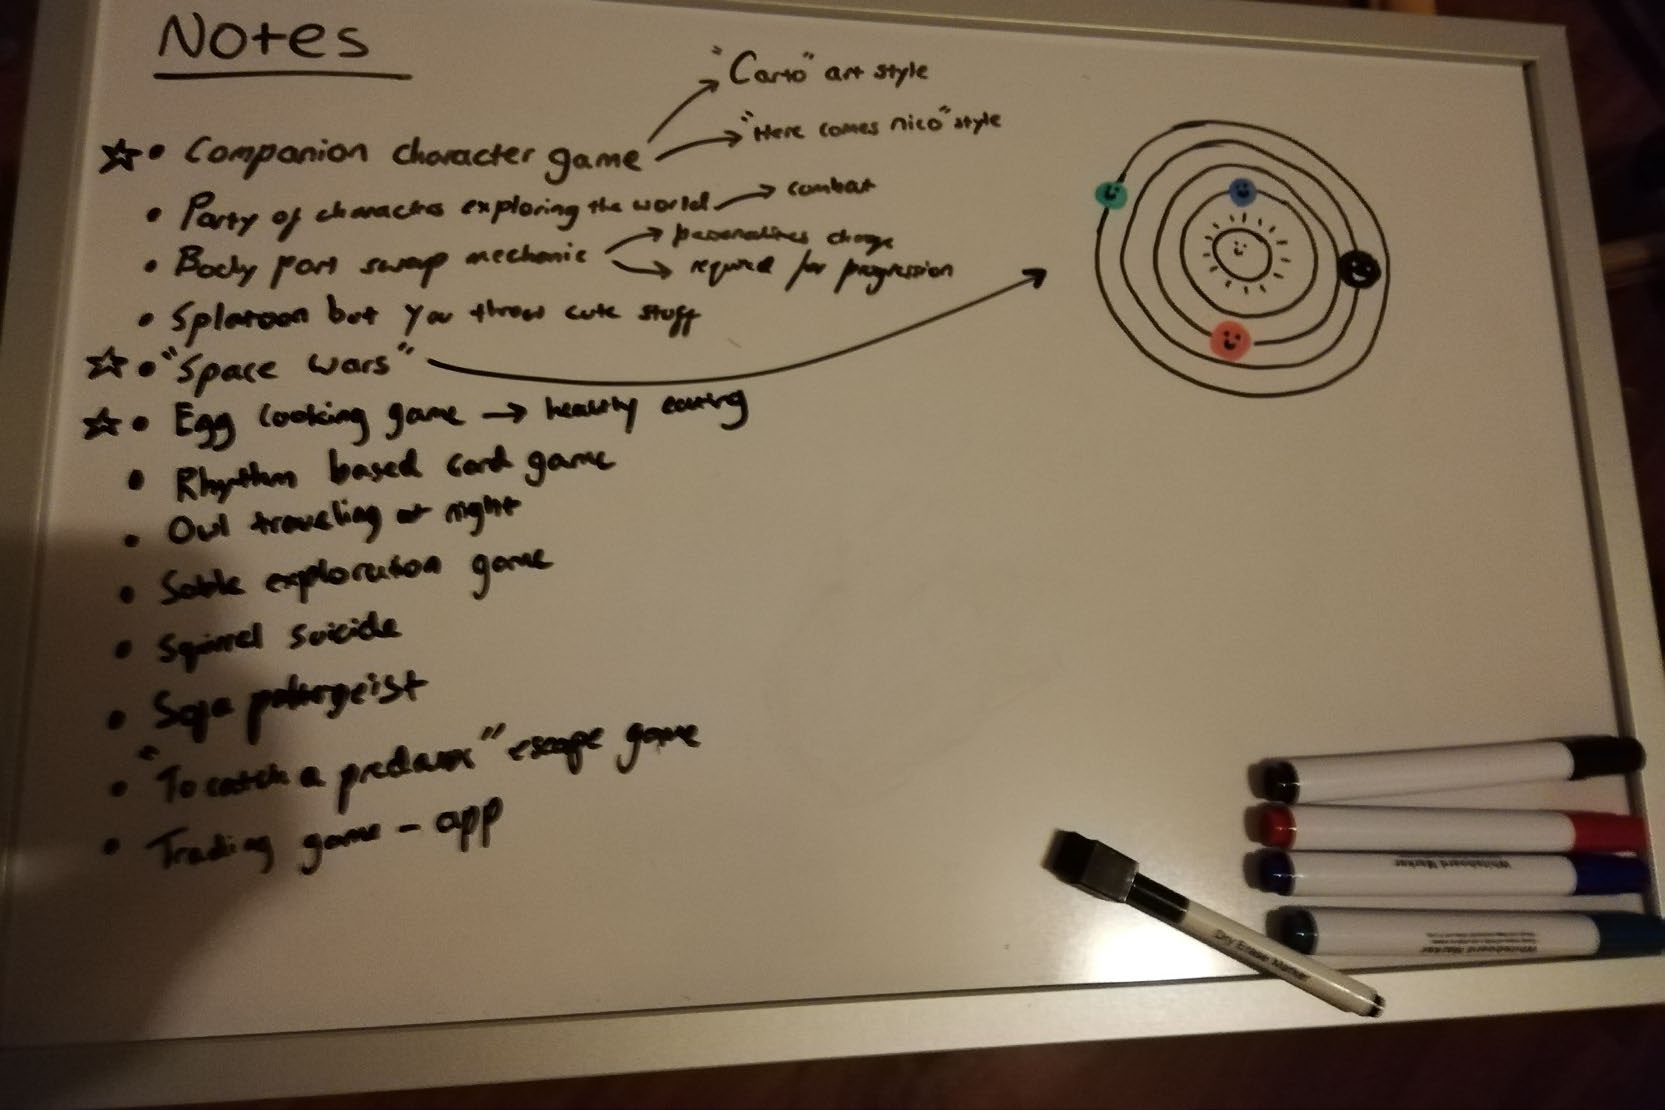 Notes
"Carto" art style
"Here comes nico" style
☆ • Companion character game
• Party of characters exploring the world → combat
• Body part swap mechanic → personalities change
→ required for progression
• Splatoon but you throw cute stuff
☆ • "Space wars"
☆ • Egg cooking game → healthy eating
• Rhythm based card game
• Owl traveling at night
• Sable exploration game
• Squirrel suicide
• Soja poltergeist
• "To catch a predator" escape game
• Trading game - app
Whiteboard Marker
Dry Erase Marker
Whiteboard Marker